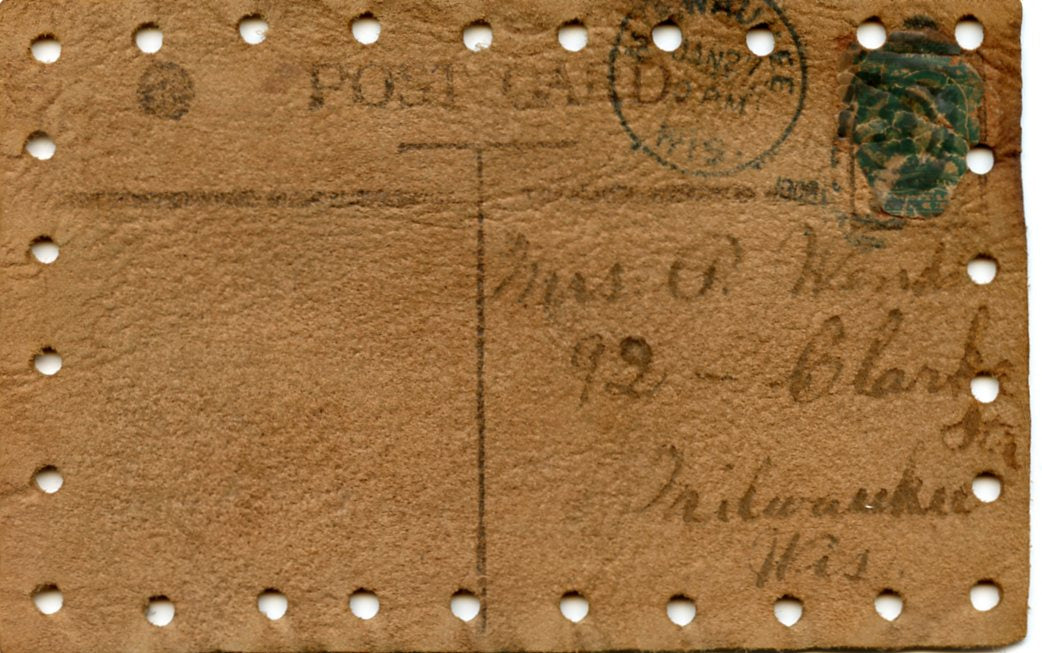 POST CARD
MILWAUKEE
JAN 27
AM
WIS.
Mrs. P.
92 - Clark
Milwaukee
Wis.